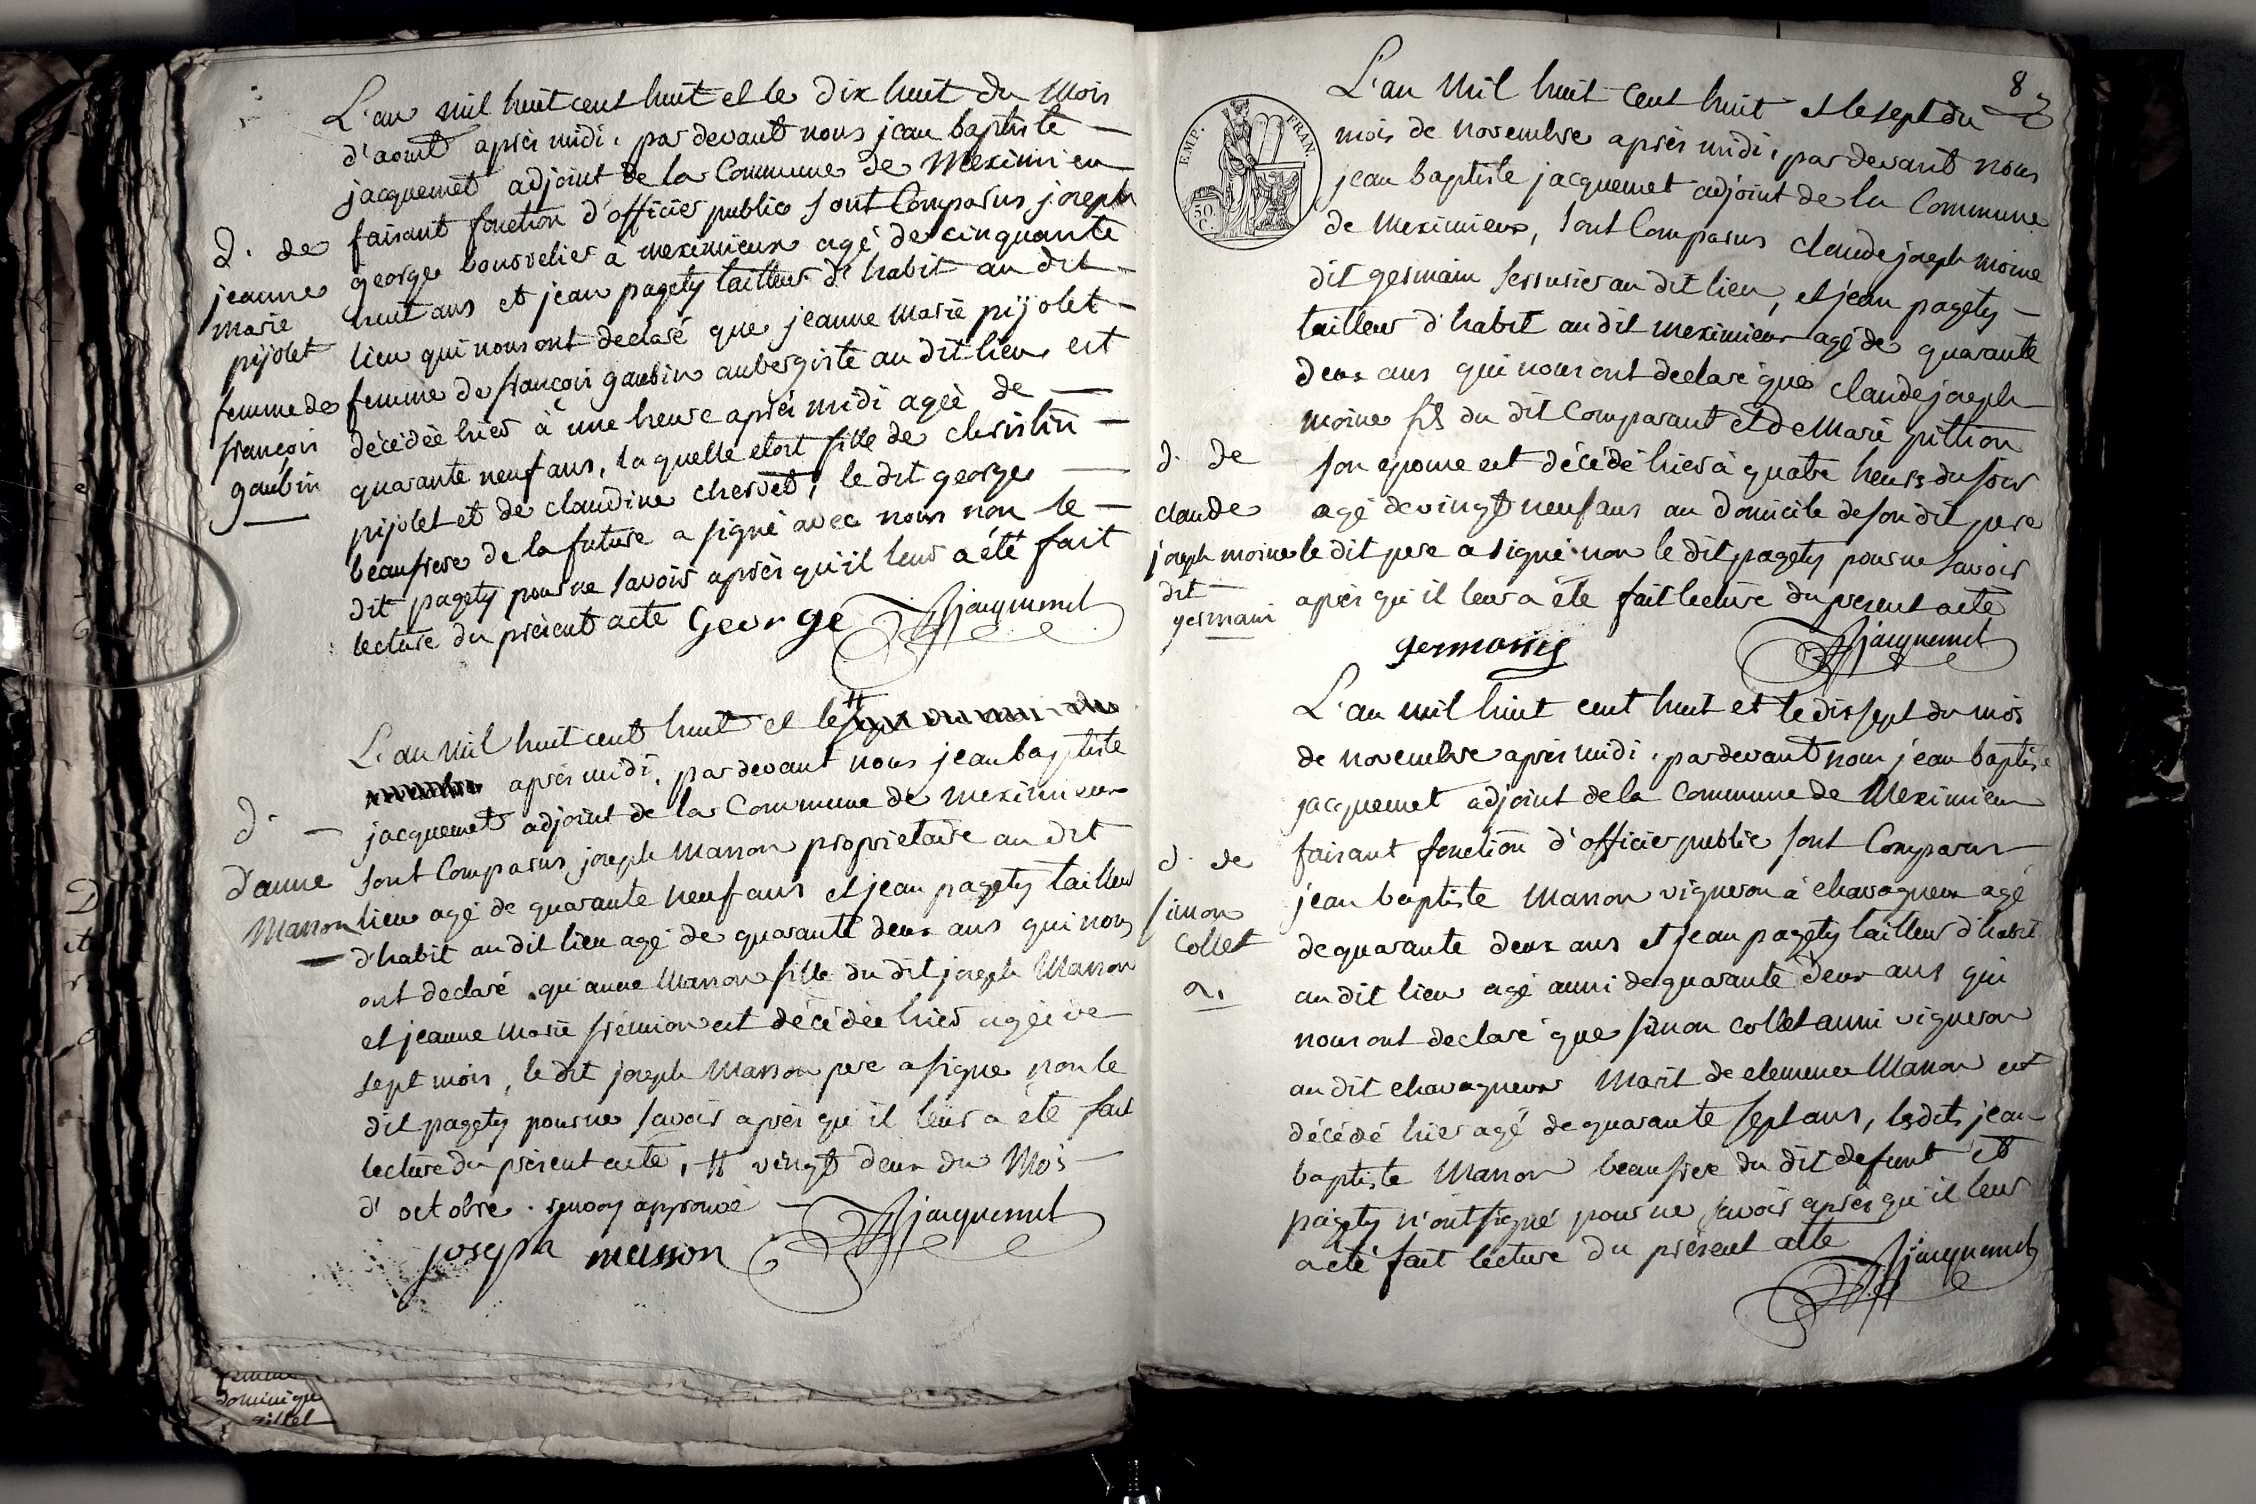 L'an mil huit cent huit et le dix huit du mois
d'aout après midi, par devant nous jean baptiste
jacquemet adjoint de la Commune de Meximieu
faisant fonction d'officier public sont Comparus joseph
george bourrelier à meximieux agé de cinquante
huit ans et jean pagety tailleur d'habit au dit
lieu qui nous ont declaré que jeanne marie pijolet
femme de françois gaubin aubergiste au dit lieu est
décédée hier à une heure après midi agée de
quarante neuf ans, la quelle etoit fille de christin
pijolet et de claudine chervet, le dit george
beaufrere de la future a signé avec nous non le
dit pagety pour ne savoir après qu'il leur a été fait
lecture du présent acte George jjacquemet
d. de
jeanne
marie
pijolet
femme de
françois
gaubin
L'an mil huit cent huit et le #
après midi, par devant nous jean baptiste
jacquemet adjoint de la Commune de meximieux
sont Comparus, joseph Masson proprietaire au dit
lieu agé de quarante neuf ans et jean pagety tailleur
d'habit au dit lieu agé de quarante deux ans qui nous
ont declaré qu'anne Masson fille du dit joseph Masson
et jeanne marie frémion est décédée hier agée de
sept mois, le dit joseph Masson pere a signé non le
dit pagety pour ne savoir après qu'il leur a été fait
lecture du présent acte, # vingt deux du Mois
d'octobre. approuvé
joseph masson jjacquemet
d.
d'anne
Masson
femme
dominique
8
EMP. FRAN.
50
C.
L'an mil huit cent huit et le sept du
mois de novembre après midi, par devant nous
jean baptiste jacquemet adjoint de la Commune
de Meximieux, sont Comparus claude joseph moine
dit germain serrurier au dit lieu, et jean pagety
tailleur d'habit au dit meximieux agé de quarante
deux ans qui nous ont declaré que claude joseph
moine fils du dit Comparant et de Marie pittion
son epouse est décédé hier à quatre heures du soir
agé de vingt neuf ans au domicile de son dit pere
le dit pere a signé non le dit pagety pour ne savoir
après qu'il leur a été fait lecture du present acte
germain jjacquemet
d. de
claude
joseph moine
dit
germain
L'an mil huit cent huit et le dix sept du mois
de novembre après midi, par devant nous jean baptiste
jacquemet adjoint de la Commune de Meximieu
faisant fonction d'officier public sont Comparus
jean baptiste Masson vigneron à chavagneux agé
de quarante deux ans et jean pagety tailleur d'habit
au dit lieu agé aussi de quarante deux ans qui
nous ont declaré que simon collet aussi vigneron
au dit chavagneux Marit de clemence Masson est
décédé hier agé de quarante sept ans, les dits jean
baptiste Masson beaufrere du dit defunt et
pagety n'ont signé pour ne savoir après qu'il leur
a été fait lecture du présent acte jjacquemet
d. de
simon
Collet